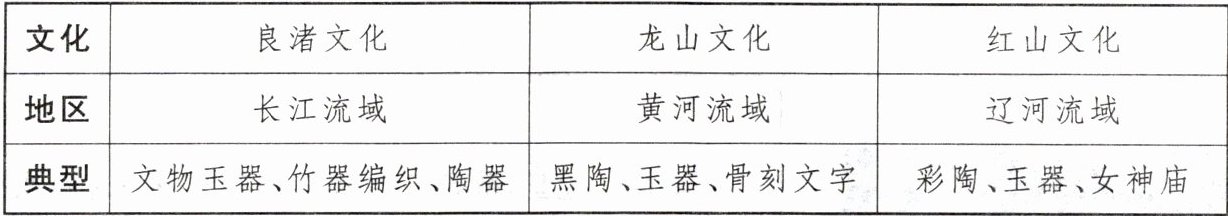 文化 良渚文化 龙山文化 红山文化
地区 长江流域 黄河流域 辽河流域
典型 文物玉器、竹器编织、陶器 黑陶、玉器、骨刻文字 彩陶、玉器、女神庙